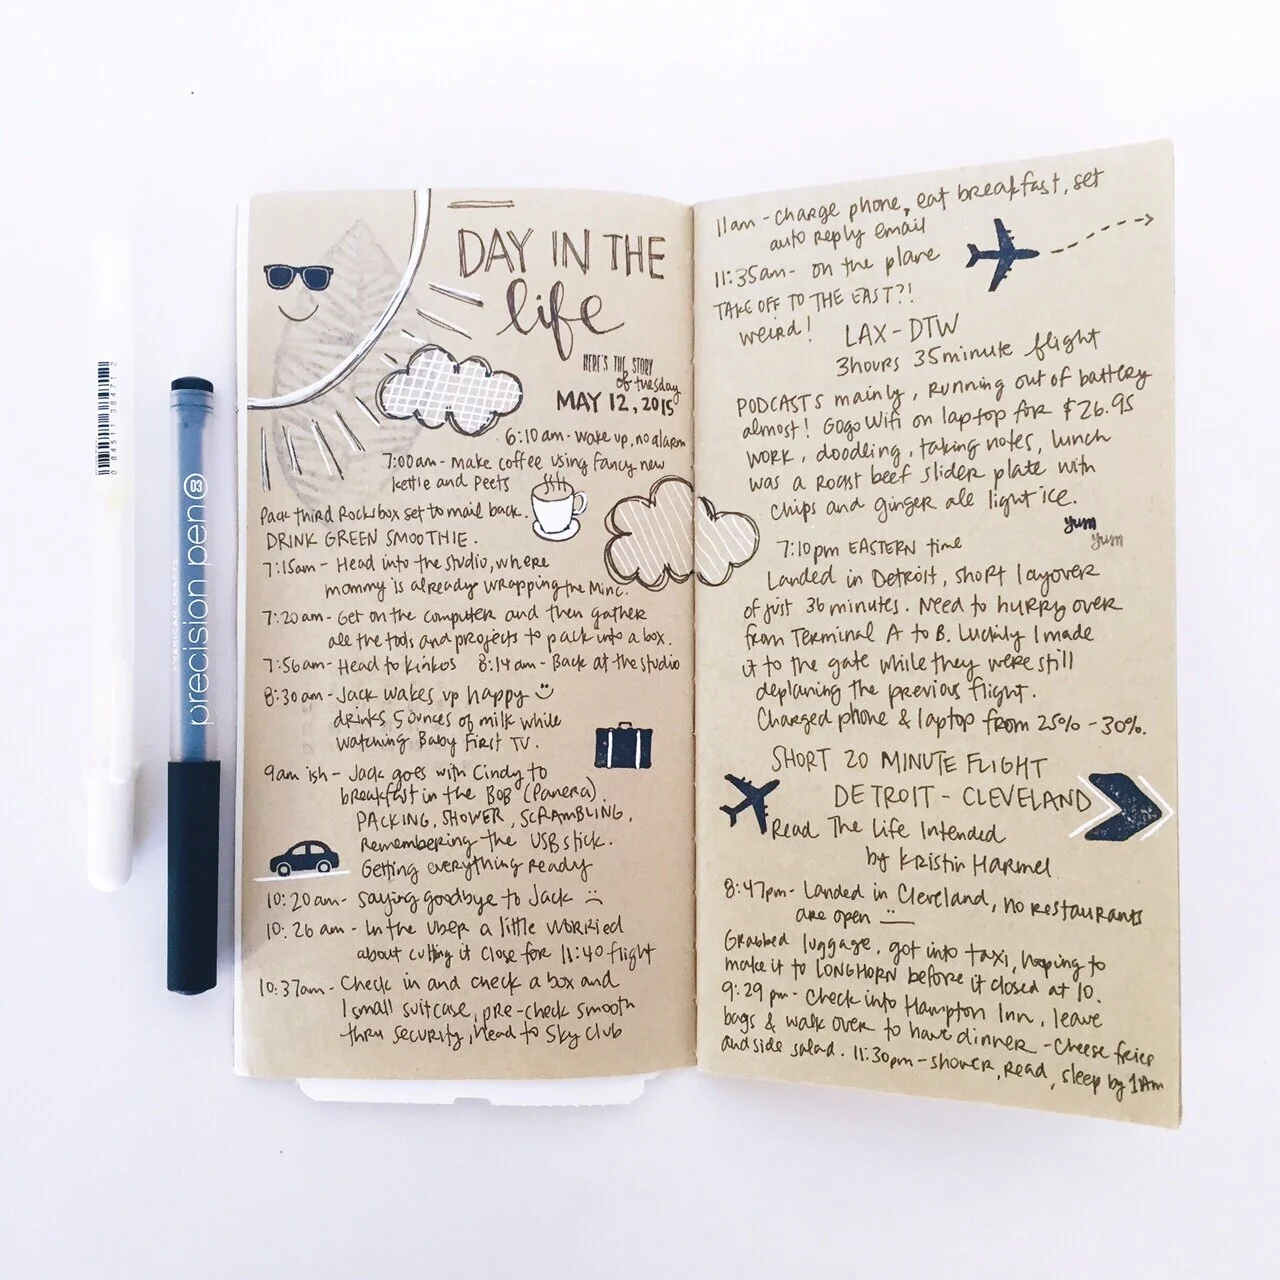 DAY IN THE
life
HERE'S THE STORY
of tuesday
MAY 12, 2015
6:10am - wake up, no alarm
7:00am - make coffee using fancy new
kettle and Peets
Pack third Rocksbox set to mail back.
DRINK GREEN SMOOTHIE.
7:15am - Head into the studio, where
mommy is already wrapping the Minc.
7:20am - Get on the computer and then gather
all the tools and projects to pack into a box.
7:56am - Head to Kinkos 8:14am - Back at the studio
8:30am - Jack wakes up happy
drinks 5 ounces of milk while
watching Baby First TV.
9am ish - Jack goes with Cindy to
breakfast in the BOB (Panera).
PACKING, SHOWER, SCRAMBLING,
Remembering the USB stick.
Getting everything ready
10:20am - saying goodbye to Jack
10:26am - In the Uber a little worried
about cutting it close for 11:40 flight
10:37am - Check in and check a box and
1 small suitcase, pre-check smooth
thru security, head to Sky Club
11am - charge phone, eat breakfast, set
auto reply email
11:35am - on the plane
TAKE OFF TO THE EAST?!
weird!
LAX - DTW
3hours 35minute flight
PODCASTS mainly, running out of battery
almost! GogoWifi on laptop for $26.95
work, doodling, taking notes, lunch
was a roast beef slider plate with
chips and ginger ale light ice.
yum
yum
7:10pm EASTERN time
Landed in Detroit, short layover
of just 36 minutes. Need to hurry over
from Terminal A to B. Luckily I made
it to the gate while they were still
deplaning the previous flight.
Charged phone & laptop from 25% - 30%.
SHORT 20 MINUTE FLIGHT
DETROIT - CLEVELAND
Read The Life Intended
by Kristin Harmel
8:47pm - Landed in Cleveland, no restaurants
are open
Grabbed luggage, got into taxi, hoping to
make it to LONGHORN before it closed at 10.
9:29 pm - Check into Hampton Inn, leave
bags & walk over to have dinner - Cheese fries
and side salad. 11:30pm - shower, read, sleep by 1am
AMERICAN CRAFTS
precision pen 03
0 84511 38471 2